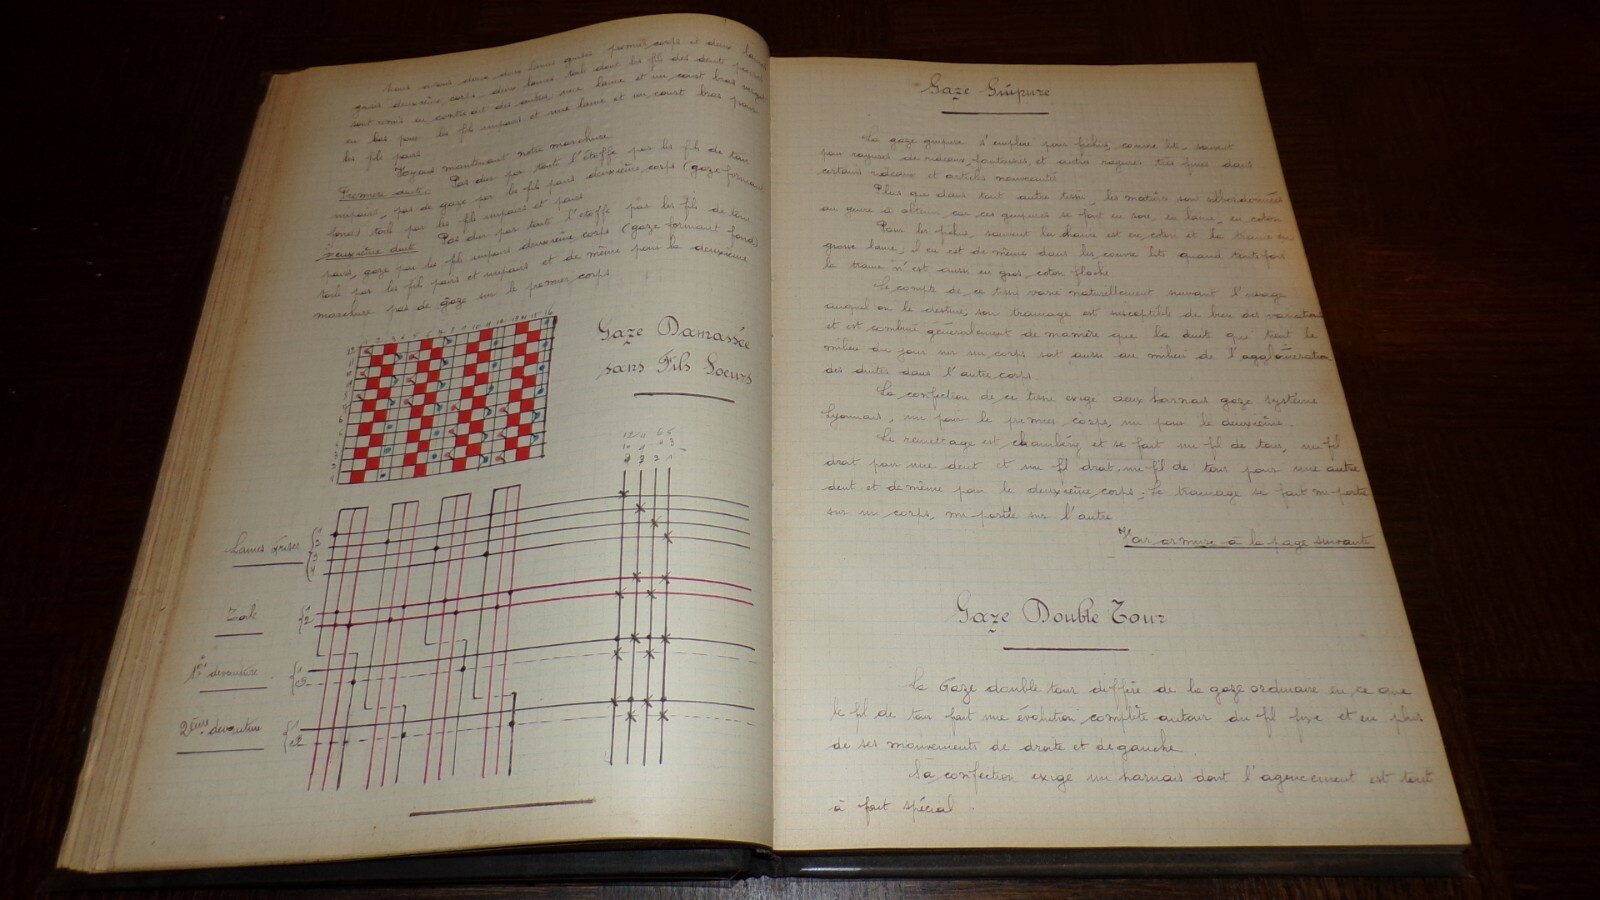 nous avons donc deux lames grises premier corps et deux lames
grises deuxième corps, deux lames toile dont les fils des dents paires
sont remis en contre des autres, une lame et un court bras
en bas pour les fils impairs et une lame et un court bras pour
les fils pairs
Voyons maintenant notre marchure
Première duite. Pas dur par toute l'étoffe par les fils de tour
impairs, pas de gaze par les fils pairs deuxième corps (gaze formant
fond) toile par les fils impairs et pairs
Deuxième duite Pas dur par toute l'étoffe par les fils de tour
pairs, gaze par les fils impairs deuxième corps (gaze formant fond)
toile par les fils pairs et impairs et de même pour la deuxième
marchure pas de gaze sur le premier corps
Gaze Damassée
sans Fils Soeurs
Lames Grises
1
2
3
4
Toile
1
2
1ère devantière
2ème devantière
Gaze Guipure
La gaze guipure s'emploie pour fichus, couvre lits, souvent
pour rayures de rideaux, fantaisies, et autres rayures très fines dans
certains rideaux et articles nouveauté
Plus que dans tout autre tissu, les matières sont subordonnées
au genre à obtenir car ces guipures se font en soie, en laine, en coton
Pour les fichus, souvent la chaine est en coton et la trame en
grosse laine, il en est de même dans les couvre lits quand toutefois
la trame n'est aussi en gros coton floche
Le compte de ce tissu varie naturellement suivant l'usage
auquel on le destine, son tramage est susceptible de bien des variations
et est combiné généralement de manière que la duite qui tient le
milieu du jour sur un corps soit aussi au milieu de l'agglomération
des duites dans l'autre corps.
La confection de ce tissu exige deux harnais gaze système
Lyonnais, un pour le premier corps, un pour le deuxième.
Le remettage est chambéry et se fait un fil de tour, un fil
droit pour une dent et un fil droit, un fil de tour pour une autre
dent et de même pour le deuxième corps. Le tramage se fait mi-partie
sur un corps, mi-partie sur l'autre
Voir armure à la page suivante
Gaze Double Tour
La Gaze double tour diffère de la gaze ordinaire en ce que
le fil de tour fait une évolution complète autour du fil fixe et en plus
de ses mouvements de droite et de gauche.
Sa confection exige un harnais dont l'agencement est tout
à fait spécial.